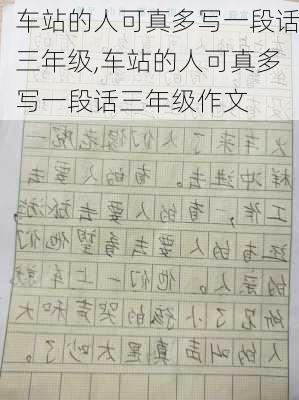 车站的人可真多写一段话
三年级,车站的人可真多
写一段话三年级作文
火车来了人们像一
样冲进去。有的人要去
工作,有的人要去旅游,
还有的人要去看望他们
的亲人。他们一上车,
听见了小孩的哭声和大
人的真是太吵了。